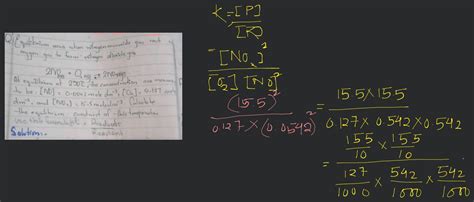 Equilibrium occurs when nitrogen monoxide gas react
oxygen gas to form nitrogen dioxide gas
2NO + O₂ 2NO₂
At equilibrium at 230°C, the concentration are
to be: [NO] = 0.0542 mol dm⁻³, [O₂] = 0.127
dm⁻³, and [NO₂] = 15.5 mol dm⁻³. Calculate
the equilibrium constant at this temperature
Products
Solution.
K = [P]
[R]
= [NO₂]²
[O₂] [NO]²
(15.5)²
0.127 × (0.0542)²
= 155 × 155
0.127 × 0.542 × 0.542
= 155/10 × 155/10
127/1000 × 542/1000 × 542/1000